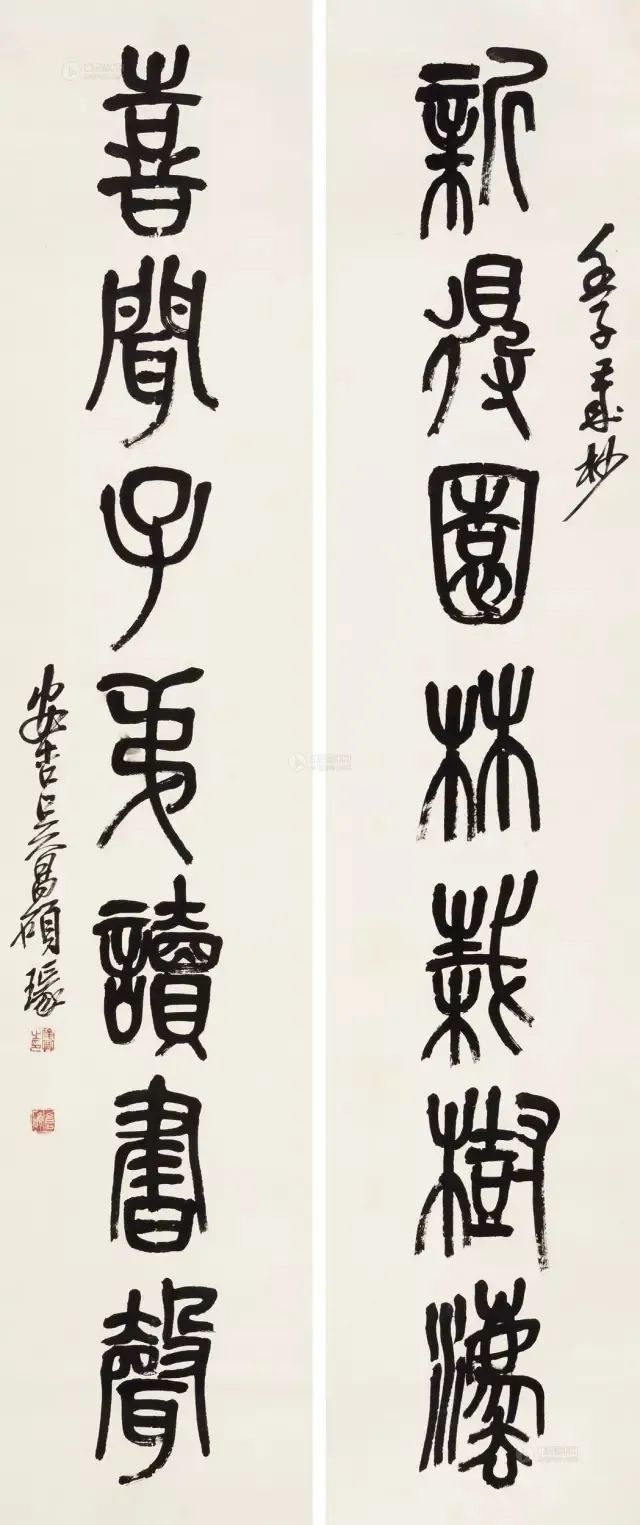 壬子歲杪
新得園林栽樹灋
喜聞子弟讀書聲
安吉吳昌碩